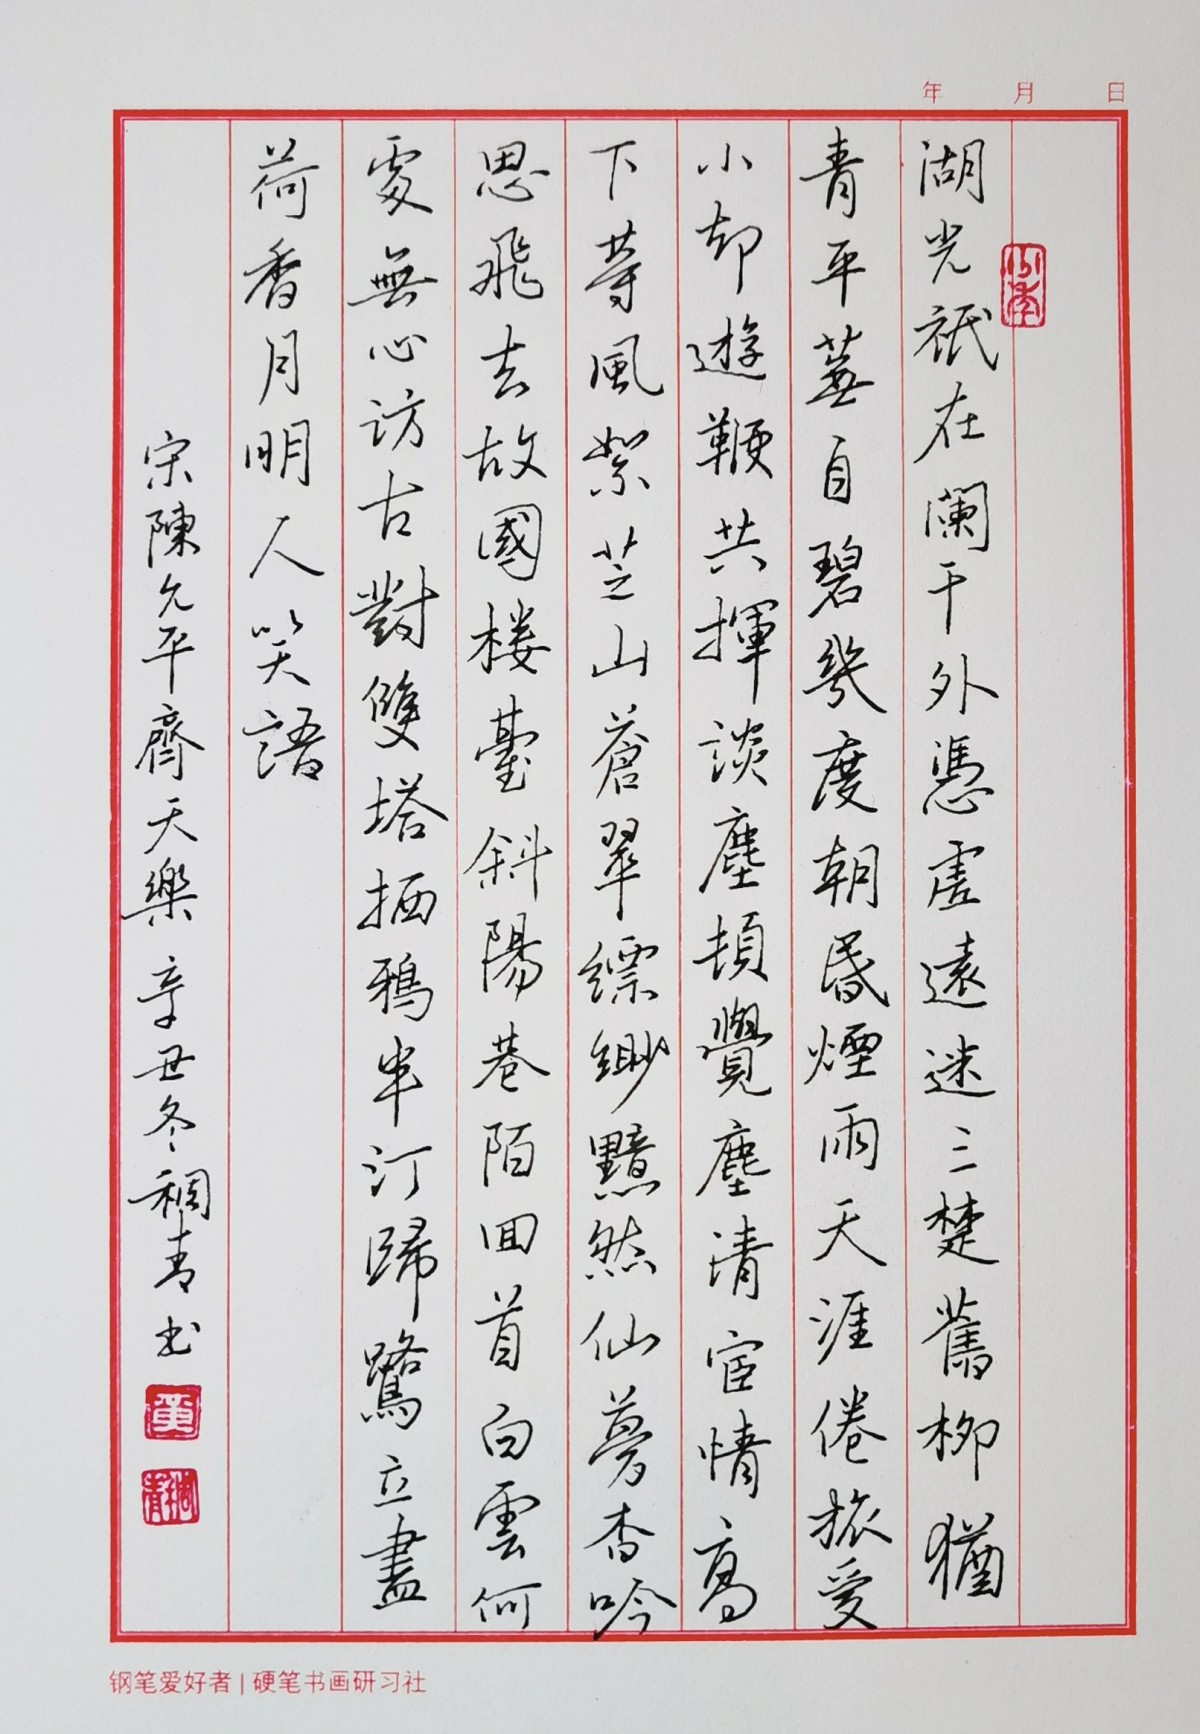 年 月 日
湖光祇在阑干外憑虛遠迷三楚舊柳猶
青平蕪自碧幾度朝昏煙雨天涯倦旅爱
小却遊鞭共揮談塵頓覺塵清宦情高
下等風絮芝山蒼翠縹緲黯然仙夢杳吟
思飛去故國楼臺斜陽巷陌回首白雲何
處無心访古對雙塔栖鴉半汀歸鷺立盡
荷香月明人笑語
宋陳允平齊天樂 辛丑冬稠青书
钢笔爱好者 | 硬笔书画研习社